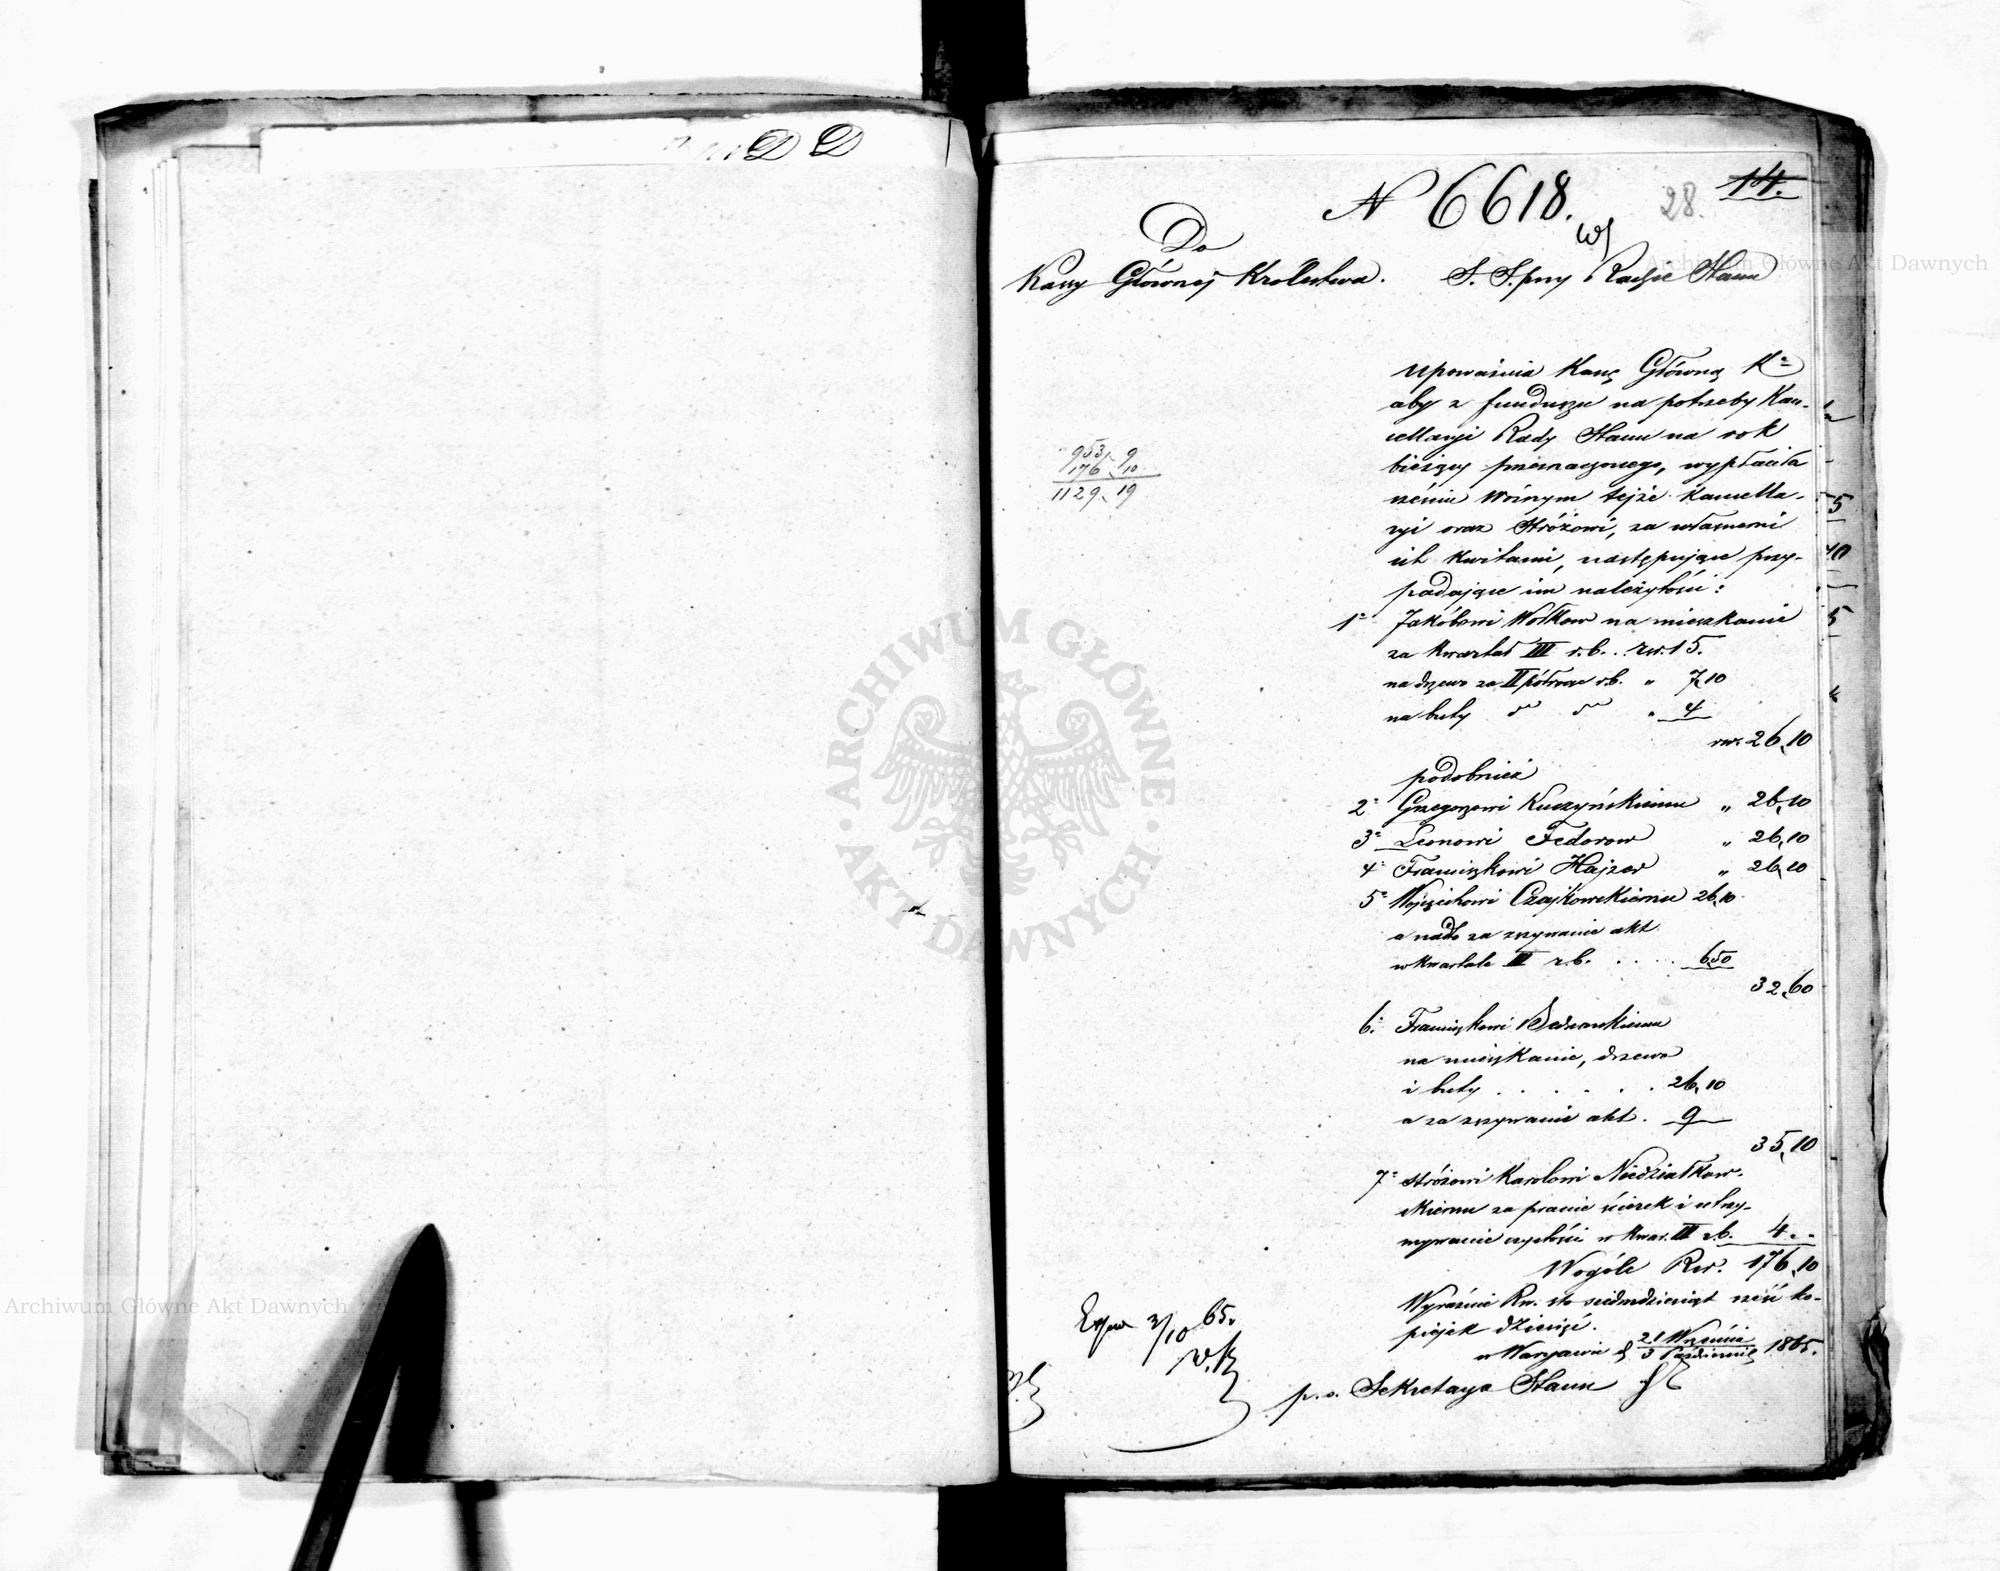 N 6618.
28.
14.
Do
Kassy Głównej Królestwa.
S. S. przy Radzie Stanu
upoważnia Kassę Główną Kа
aby z funduszu na potrzeby Kan-
cellaryi Rady Stanu na rok
bieżący przeznaczonego, wypłaciła
Woźnym tejże Kancella-
ryi oraz Stróżowi, za własnemi
ich kwitami, następujące przy-
padające im należytości:
953, 9
176, 10
1129, 19
1° Jakóbowi Wołkow na mieszkanie
za kwartał III r.b. . . rsr. 15.
na drzewo za II półrocze r.b. " 7,10
na buty do do " 4
rsr. 26,10
podobnież
2° Grzegorzowi Kuczyńskiemu " 26,10
3° Leonowi Fedorow " 26,10
4° Franciszkowi Hajzer " 26,10
5° Wojciechowi Czajkowskiemu 26,10
a nadto za zszywanie akt
w kwartale III r.b. . . . . 6,50
32,60
6° Franciszkowi
na mieszkanie, drzewo
i buty . . . . . 26,10
a za zszywanie akt. 9
35,10
7° Stróżowi Karolowi Niedziałkow-
skiemu za pranie ścierek i utrzy-
mywanie czystości w kwar. III r.b. 4 . .
Wogóle Rsr. 176,10
Wyraźnie Rsr. sto siedmdziesiąt sześć ko-
piejek dziesięć.
w Warszawie d. 21 Września / 3 Październik 1865.
p. o. Sekretarza Stanu
65.
Archiwum Główne Akt Dawnych
Archiwum Główne Akt Dawnych
ARCHIWUM GŁÓWNE
AKT DAWNYCH